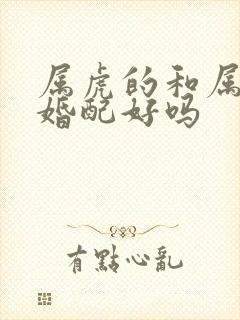 属虎的和属
婚配好吗
有點心亂